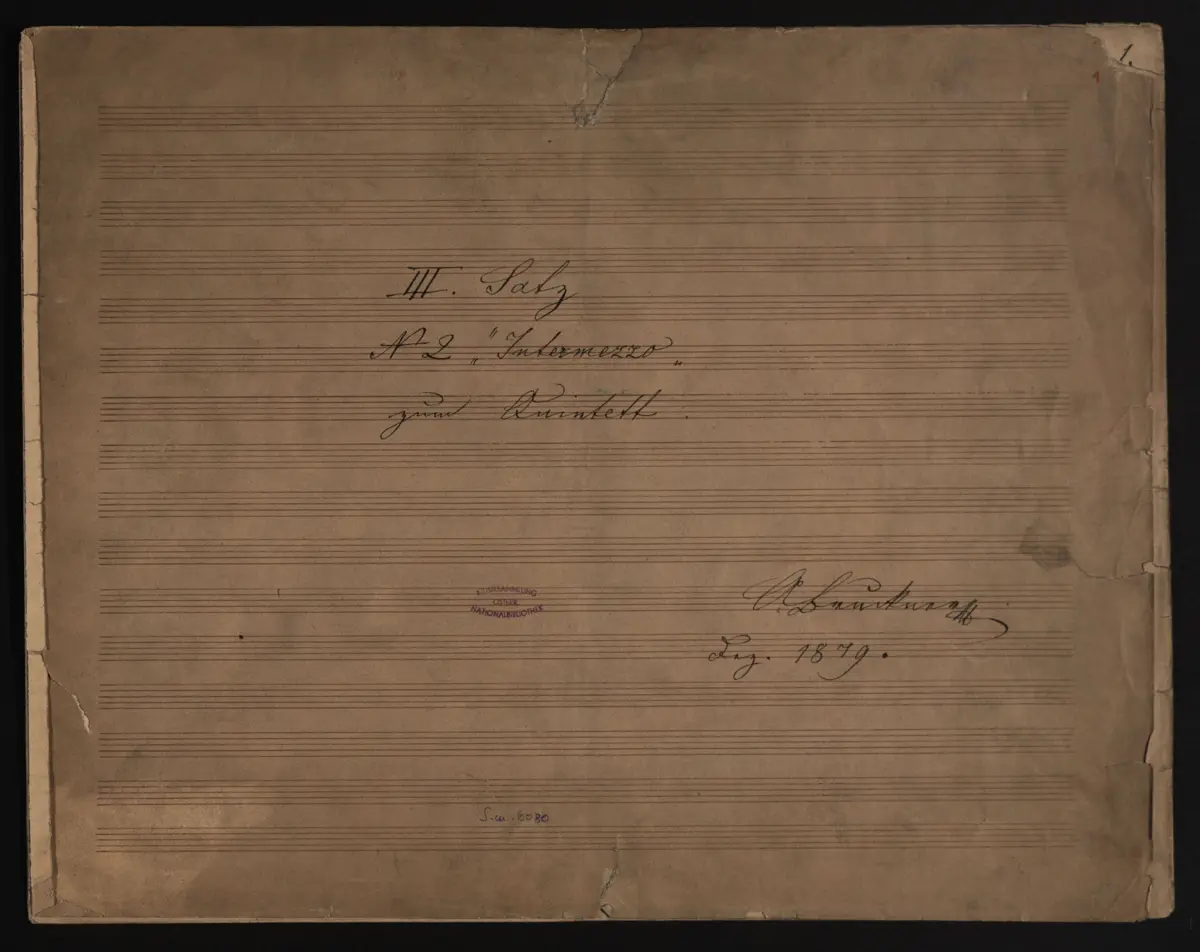 1.
1
III. Satz
No 2 „"Intermezzo"„
zum Quintett.
A. Bruckner
Dez. 1879.
MUSIKSAMMLUNG
ÖSTERR.
NATIONALBIBLIOTHEK
S.m. 6080